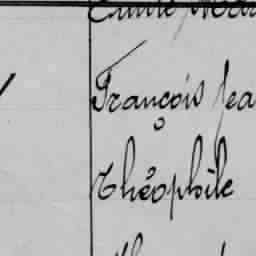 François Jea
Théophile